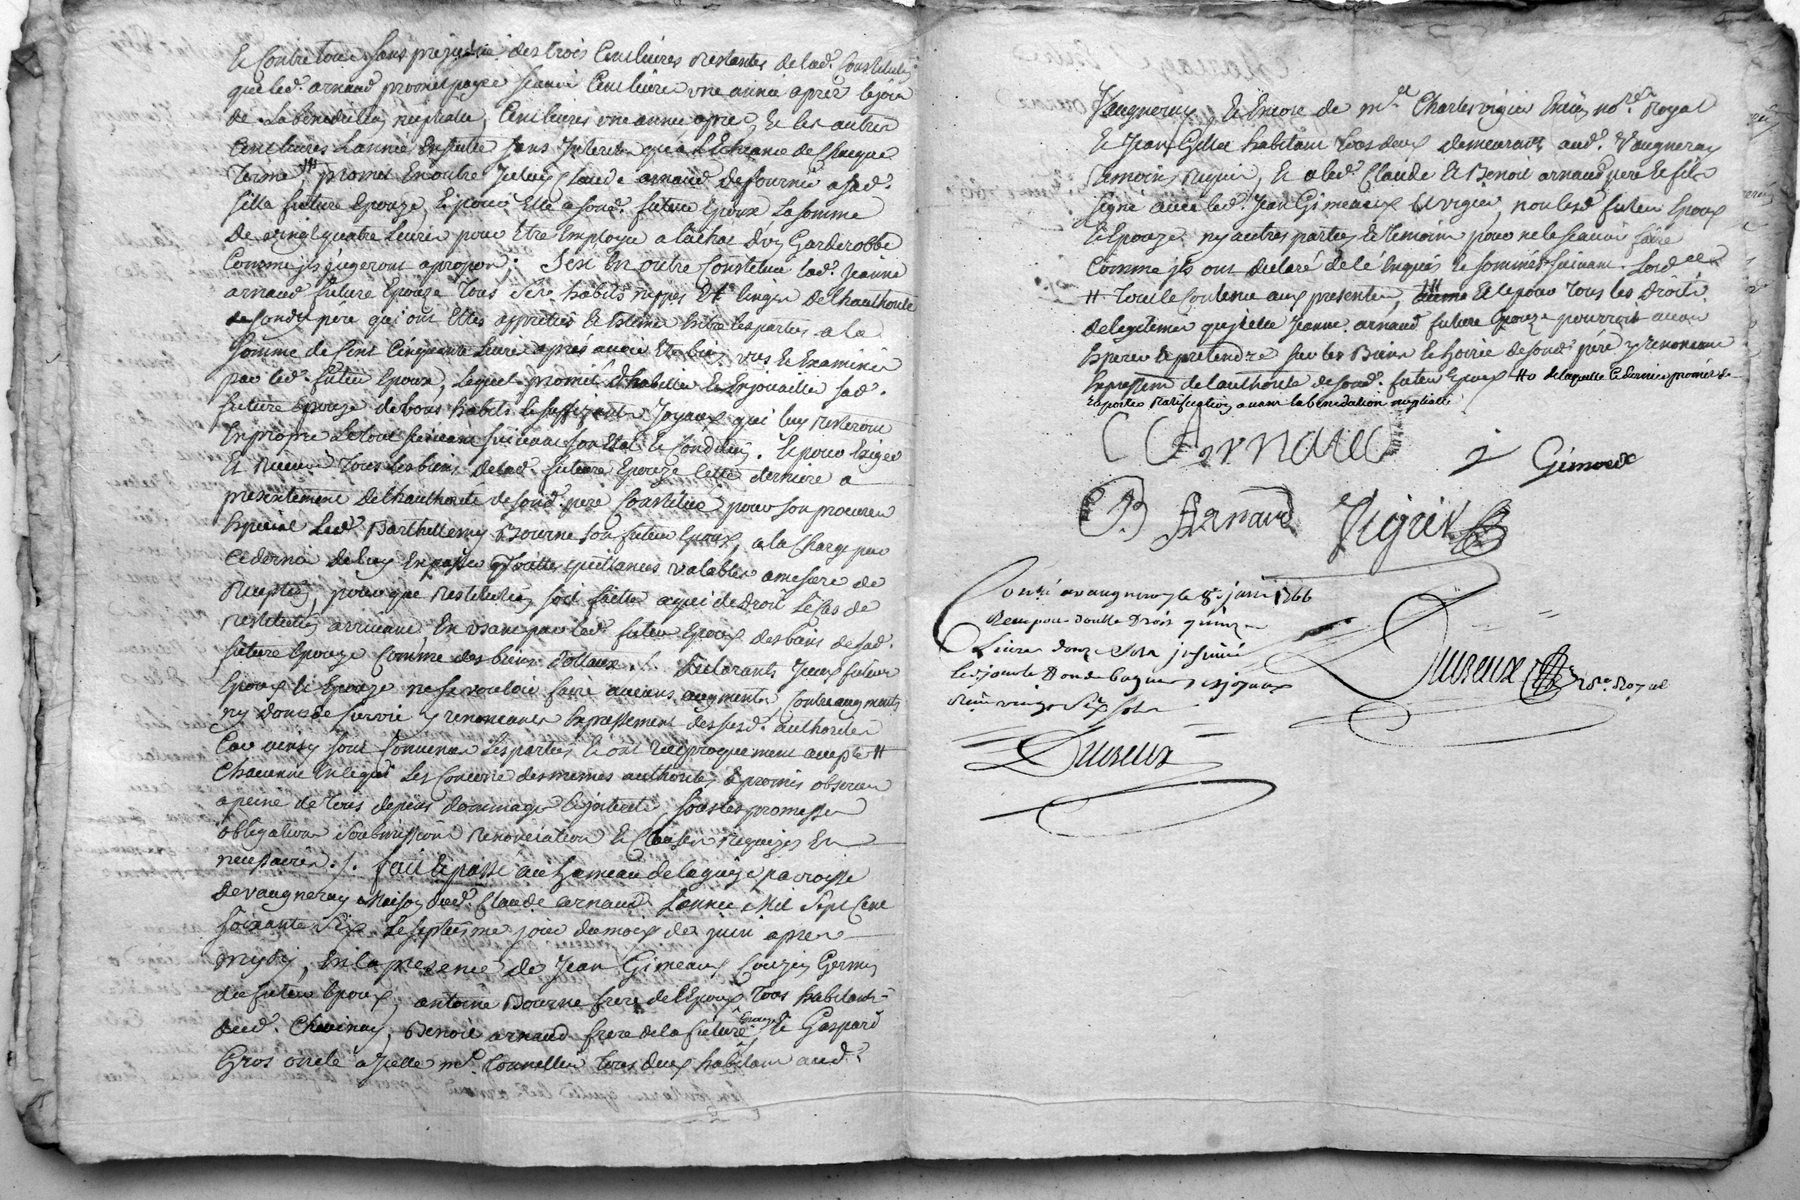 et contre tous sans prejudice des trois cent livres restantes de lad. Constitution
que led. arnaud promet payer scavoir Cent livres une année apres le jour
de la benediction nuptiale, Cent livres une année apres, et les autres
Cent livres l'année ensuitte sans interets qu'a l'echeance de chacque
terme # promet en outre iceluy Claude arnaud de fournir a sad.
fille future Epouze, et pour Elle a sond. futeur Epoux la somme
de vingt quatre livres pour Etre Employée a l'achat d'un Garderobbe
Comme ils jugeront apropos. S'est en outre Constituée lad. Jeanne
arnaud future Epouze tous ses habits nippes et linges de l'hauthorité
de sondit pere qui ont Ettés appretiés et Estimés entre les parties a la
somme de Cent Cinquante livres après avoir Eté bien vus et Examinés
par led. futeur Epoux, lequel promet d'habiller et Enjouailler sad.
future Epouze de bons habits et suffizants Joyaux qui luy resteront
en propre le tout suivant son Etat et Condition. Et pour Exiger
et recevoir tous les biens de lad. future Epouze cette derniere a
presentement de l'hauthorité de sond. pere Constitué pour son procureur
special led. Barthellemy Bourne son futeur Epoux, a la Charge par
ce dernier de luy en passer touttes quittances valables a mesure de
reception, pour que restitution soit faitte a qui de droit le cas de
restitution arrivant, En usant par led. futeur Epoux des biens de sad.
future Epouze Comme des biens dottaux. /. Declarants Iceux futeur
Epoux et Epouze ne se vouloir faire aucuns augments, Contreaugments
ny dons de survie y renonceants Expressement desd. authorités
Car ainsy sont Convenues les parties, et ont reciproquement accepté #
Chacune en l'egard les Concerne des memes authorités et promis observer
a peine de tous depens dommages et interets sous les promesses
obligations Soubmissions renonciations et Clauses requizes et
necessaires. /. fait et passé au hameau de la guise parroisse
de vaugneray Maison dud. Claude arnaud l'année Mil Sept Cent
soixante six le septieme jour du mois de juin apres
midy, en la presence de Jean Gimeaux Couzin Germain
du futeur Epoux, antoine Bourne frere de l'Epoux tous habitants
dud. Chevinay, Benoit arnaud frere de la future Epouze et Gaspard
Gros oncle a Icelle md. tous deux habitant aud.
Vaugneray et encore de me. Charles vigier no.re Royal
et Jean habitant tous deux demeurants aud. Vaugneray
temoins requis, et a led. Claude et Benoit arnaud pere et fils
signé avec led. Jean Gimeaux et vigier, non lesd. futeurs Epoux
et Epouze ny autres parties et temoins pour ne le scavoir faire
Comme ils ont declaré de ce Enquis et sommés suivant l'ord.ce
# tout le contenu aux presentes, # Et pour tous les droits
de legitimes que lad. Jeanne arnaud future Epouze pourroit avoir
Esperer et pretendre sur les Biens et hoirie de sond. pere y renonceant
Expressement de l'authorité de sond. futeur Epoux # de laquelle ce dernier promet de
raporter Ratification avant la benediction nuptialle
C Arnaud
J Gimeaux
B Arnaud Vigier
Con.lé a vaugneray le 8e juin 1766
Receu pour double Droit quinze
Livres douze sols
les joyaux
Receu vingt six sols
Dureux no.re Royal
Dureux